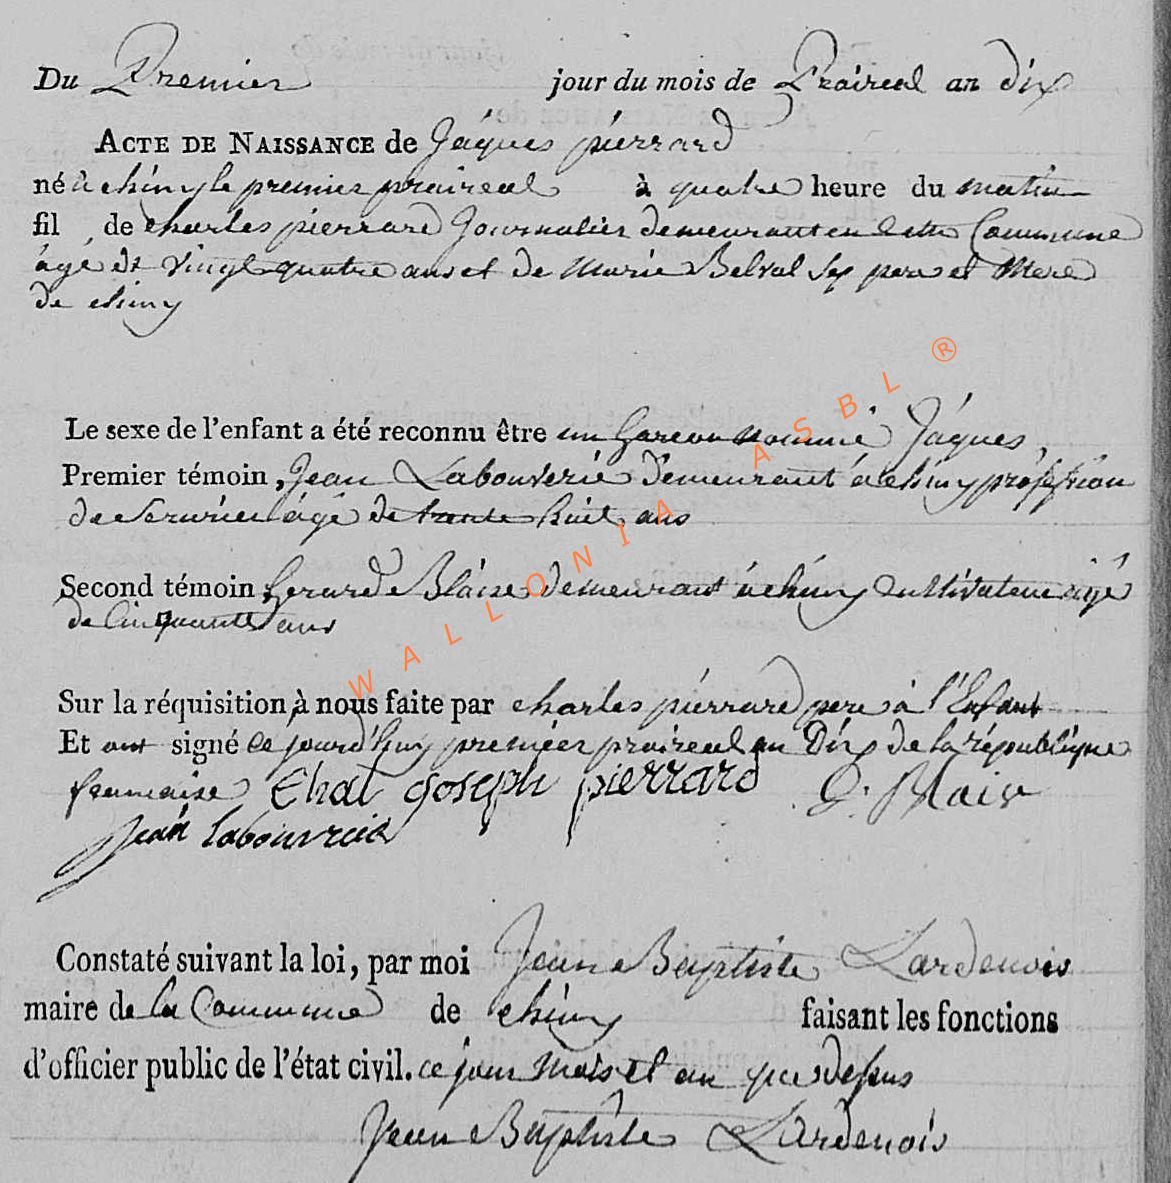 Du Premier jour du mois de Praireal an dix
ACTE DE NAISSANCE de Jáques piérrard
né à chiny le premier prairéal à quatre heure du matin
fil de charles pierrard Journalier demeurant en cette Commune
âgé de vingt quatre ans et de Marie Belval ses pere et Mere
de chiny
Le sexe de l'enfant a été reconnu être un Garcon nommé Jáques
Premier témoin, Jean Labouverie demeurant á chiny profession
de Serurier âgé de trente huit ans
Second témoin Gerard Blaise demeurant á chiny Cultivateur âgé
de Cinquante ans
Sur la réquisition à nous faite par charles piérrard pere à l'Enfant
Et ont signé ce jourd'huy premiér prairéal an Dix de la république
francaise Chal Joseph pierrard G. Blaise
Jean Labouvrie
WALLONIA ASBL ®
Constaté suivant la loi, par moi Jean Baptiste Lardenois
maire de la Commune de chiny faisant les fonctions
d'officier public de l'état civil. ce jour Mois et an que dessus
Jean Baptiste Lardenois